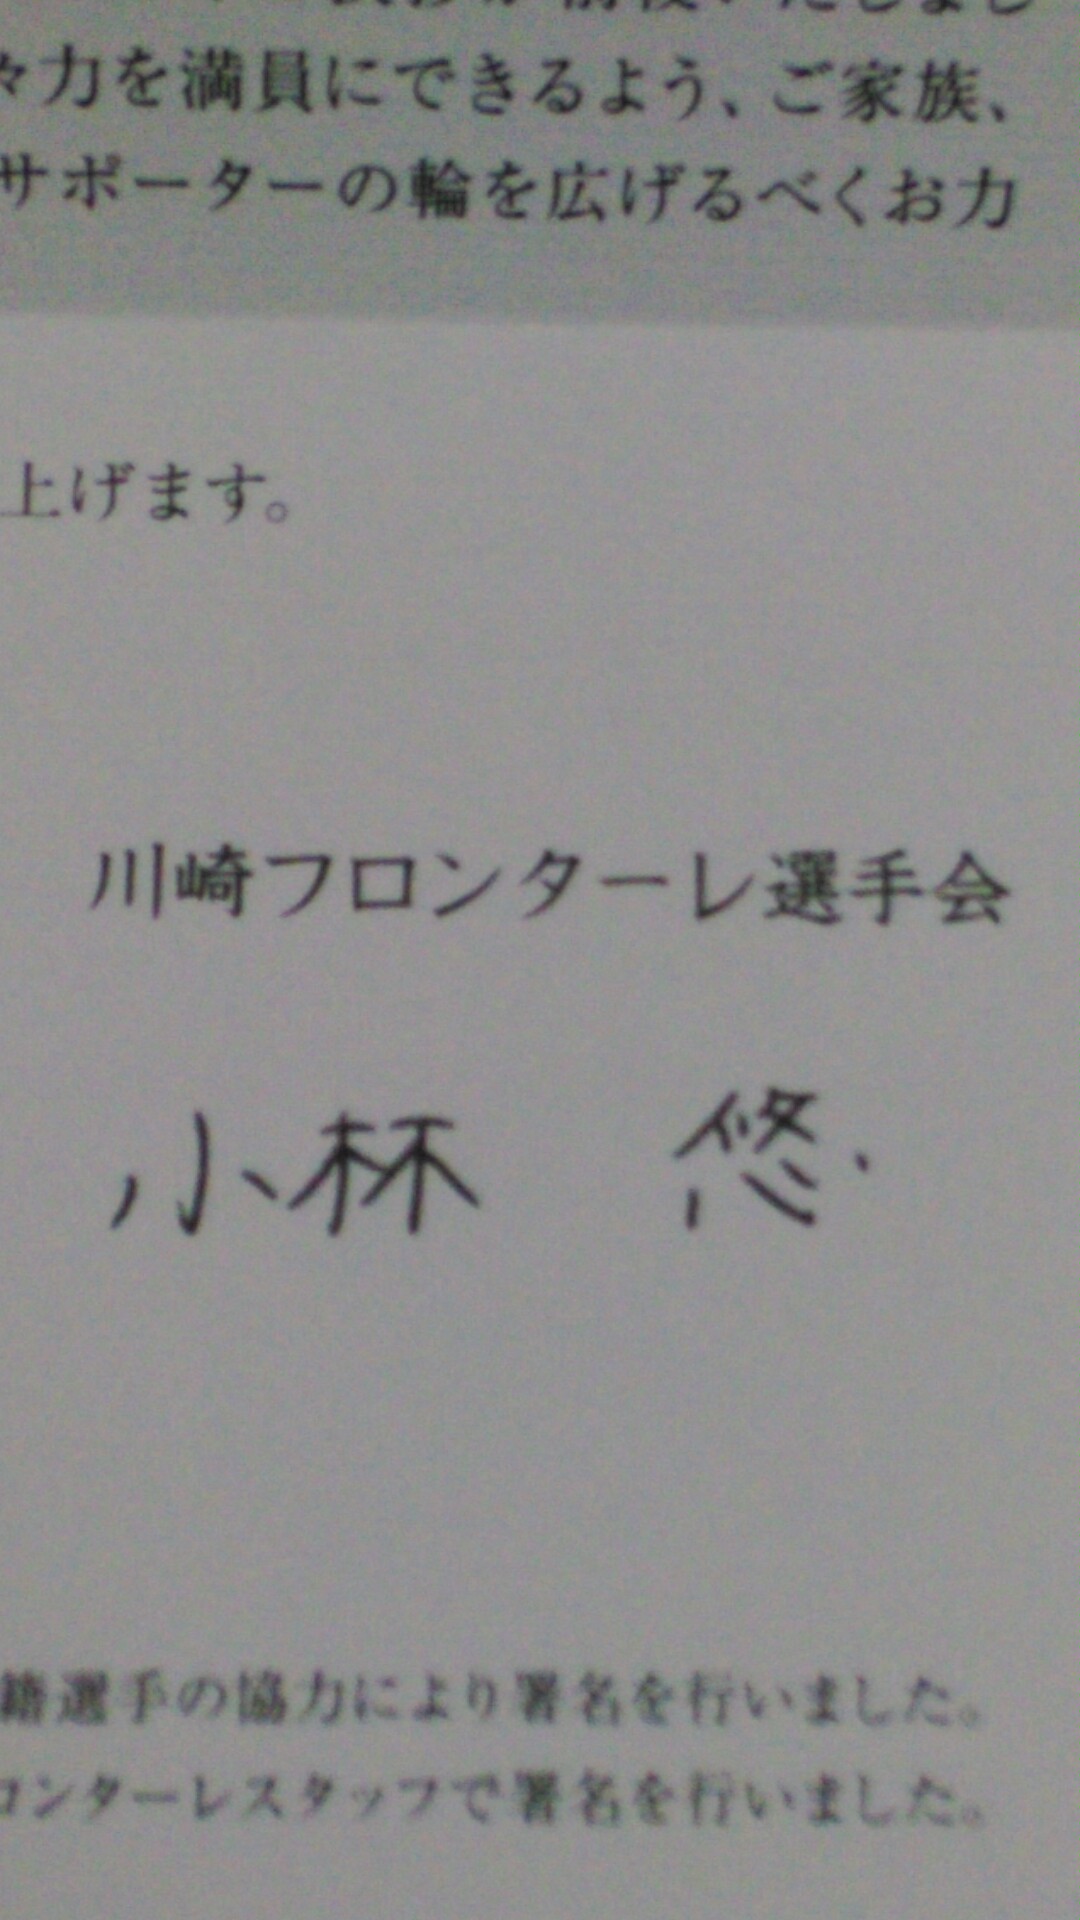 々力を満員にできるよう、ご家族、
サポーターの輪を広げるべくお力
上げます。
川崎フロンターレ選手会
小林 悠
籍選手の協力により署名を行いました。
ロンターレスタッフで署名を行いました。